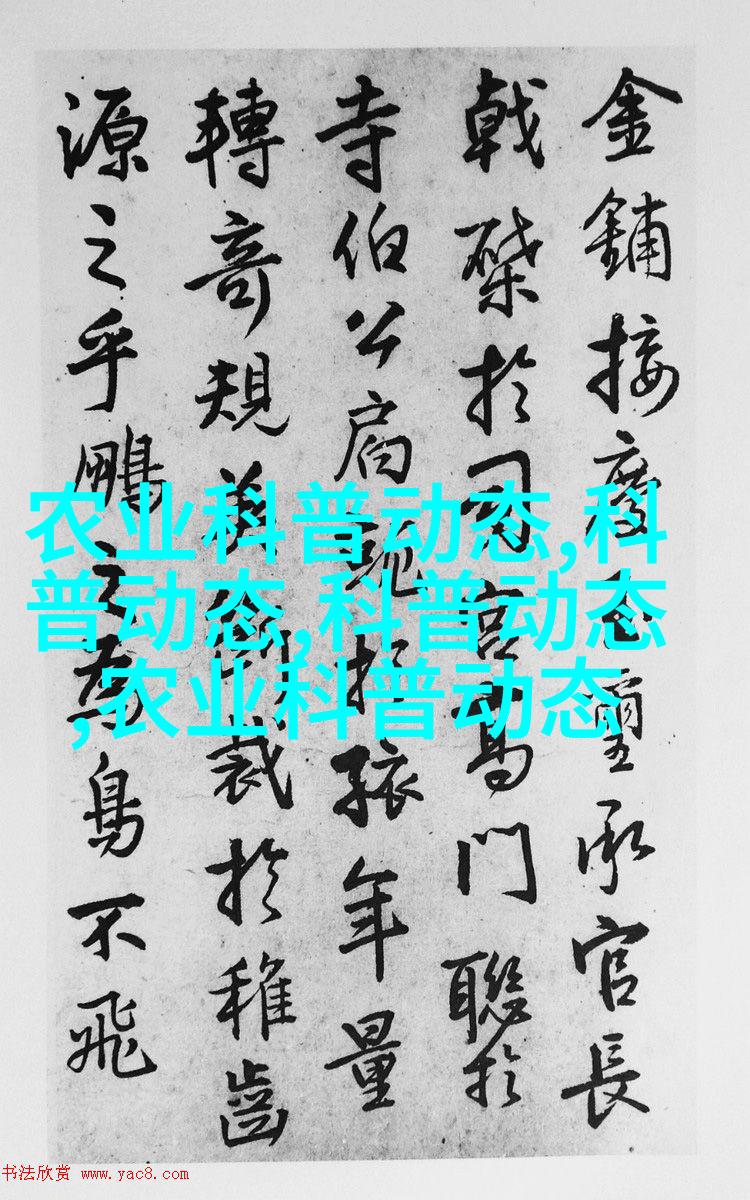 金鋪接慶璽承官長
戟棨於司宮高門聯於
寺伯公扃於孩年量
轉奇規裁於稚齒
源之乎鵬之為鳥不飛
农业科普动态,科
普动态,科普动态
,农业科普动态
书法欣赏 www.yac8.com